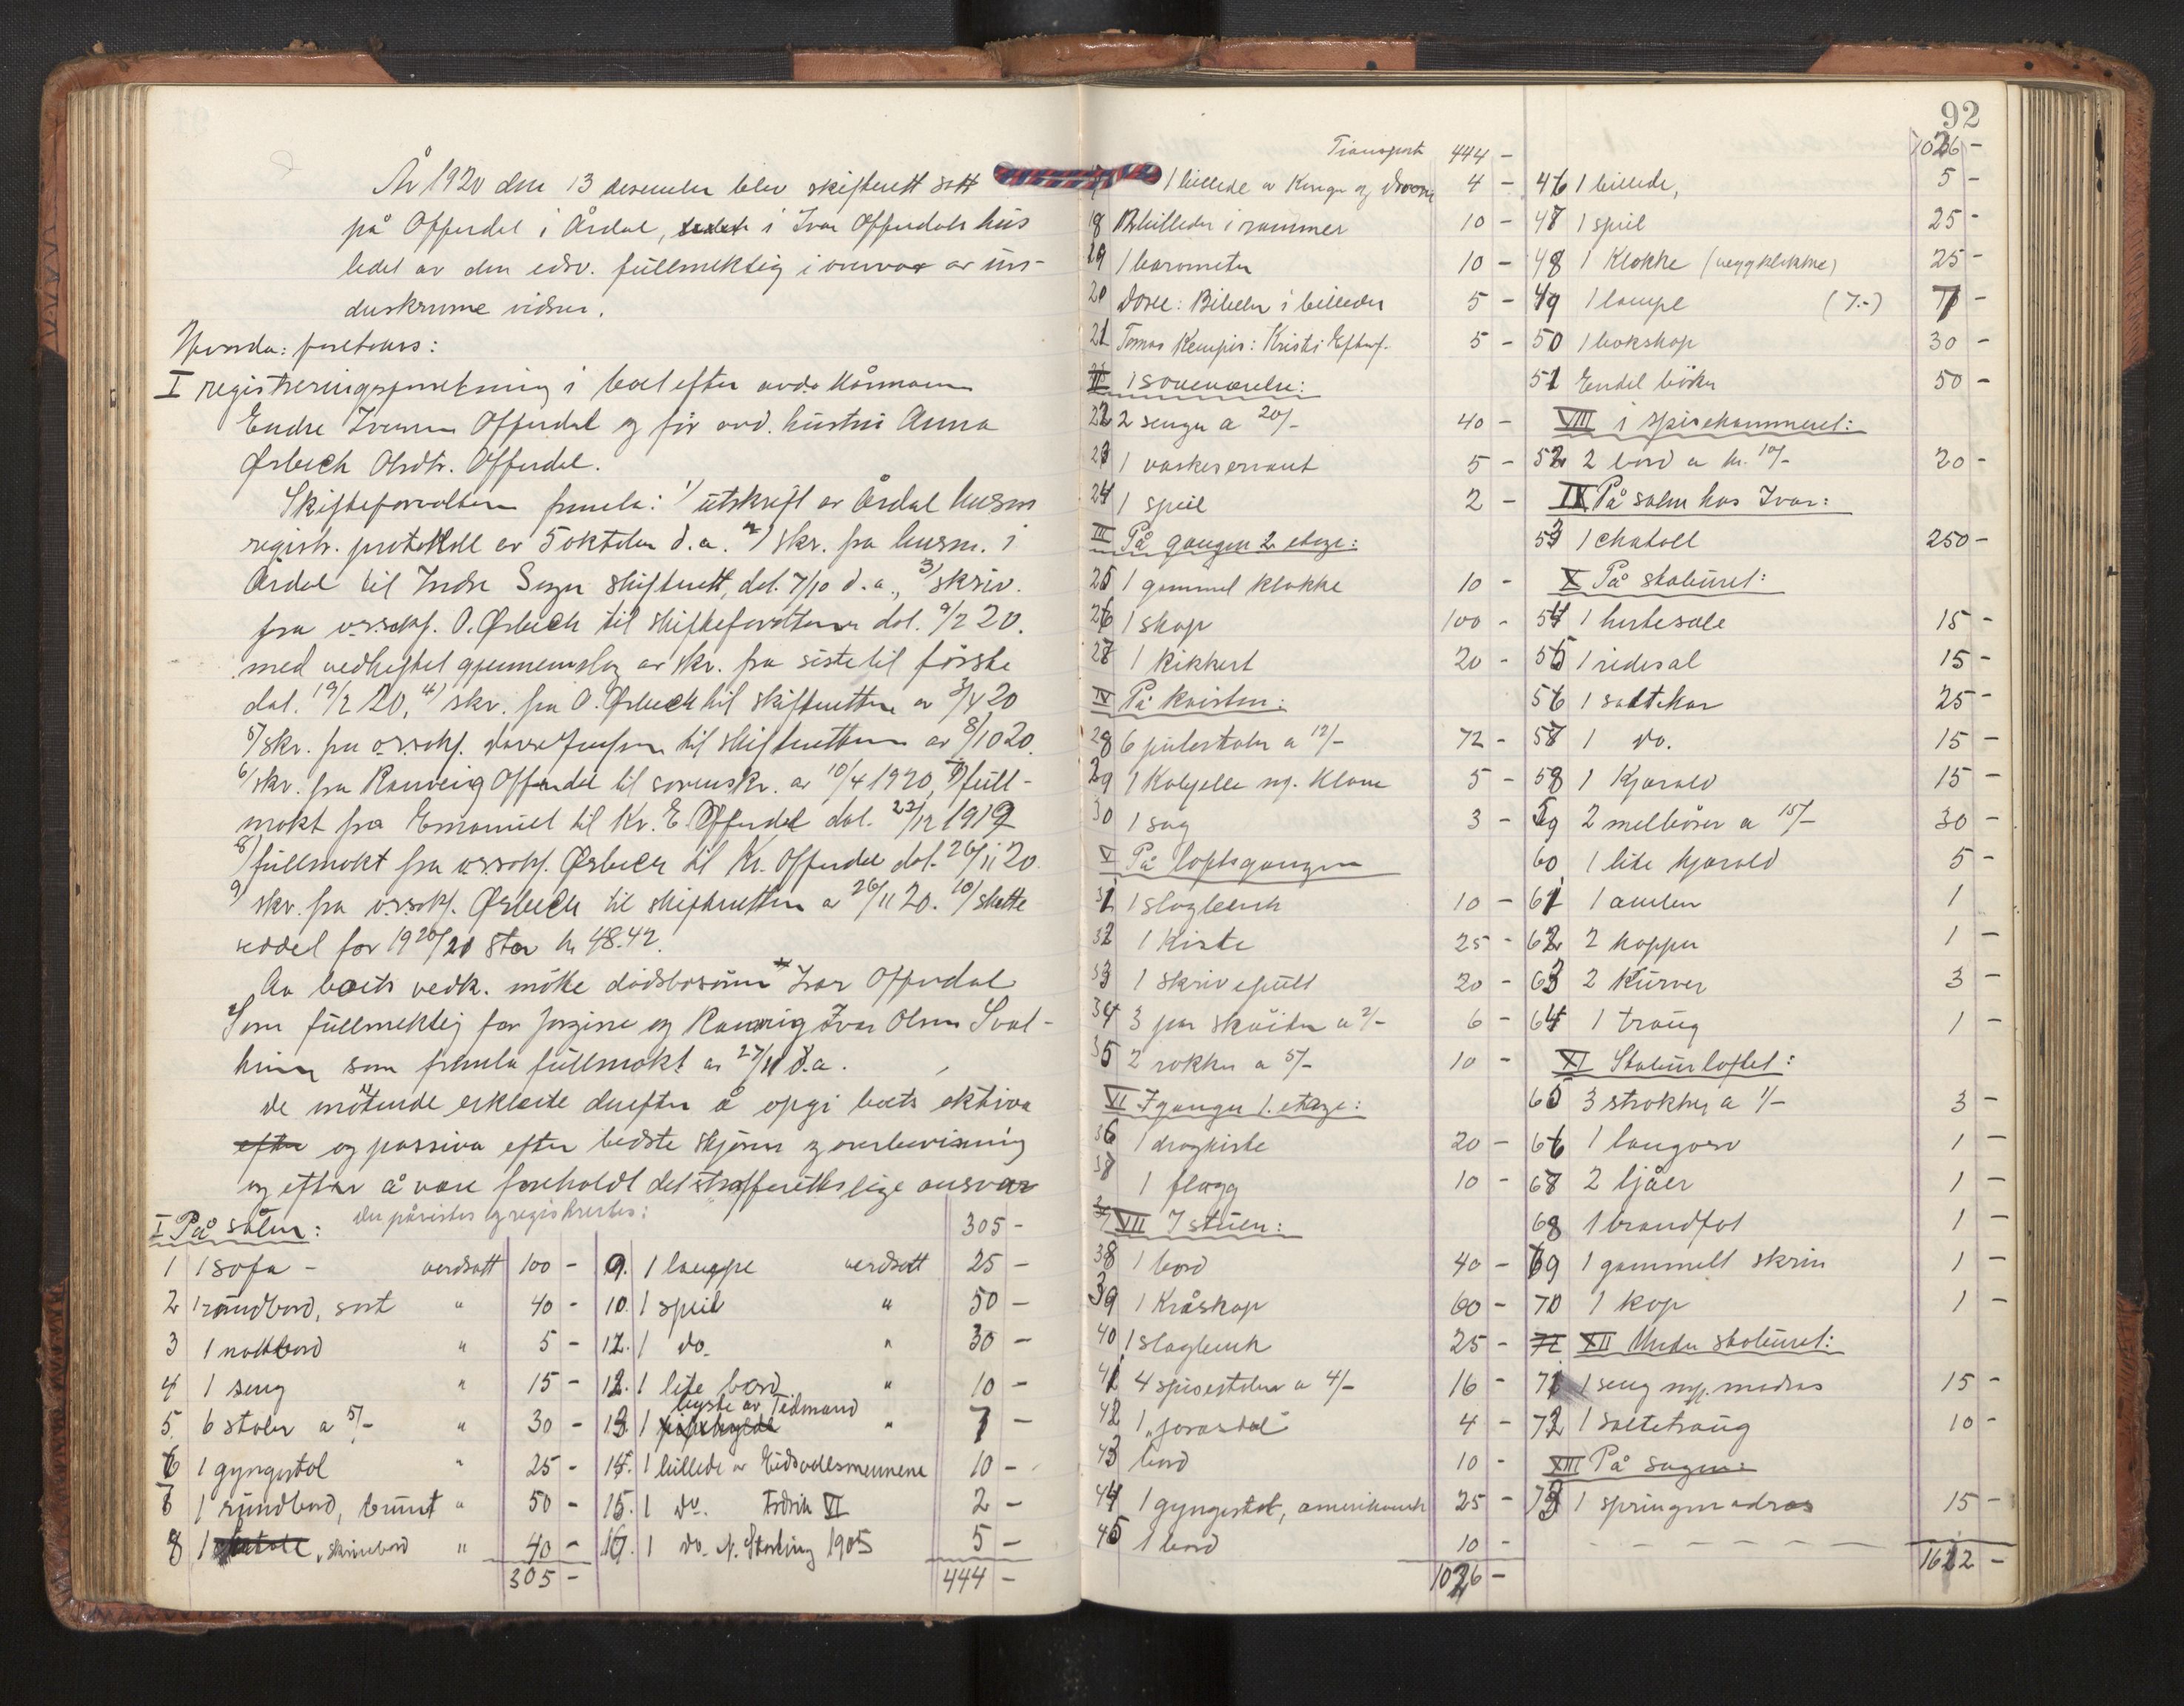 År 1920 den 13 desember blev skifterett satt
på Offerdal i Årdal, i Ivar Offerdals hus
ledet av den edsv. fullmektig i overvær av un-
derskrevne vidner.
Hvorda: foretoes:
I registreringsforretning i boet efter avdø. kårmann
Endre Iversen Offerdal og før avd. hustru Anna
Ørbech Olsdtr. Offerdal.
Skifteforvalteren fremla: 1/ utskrift av Årdal lensm
registr. protokoll av 5 oktober d.a. 2/ skr. fra lensm. i
Årdal til Indre Sogn skifterett, dat. 7/10 d.a., 3/ skriv.
fra o.r.sakf. O. Ørbech til skifteforvalteren dat. 9/2 20.
med vedheftet gjennemslag av skr. fra siste til første
dat. 19/2 20, 4/ skr. fra O. Ørbech til skifteretten av 3/4 20
5/ skr. fra o.r.sakf. til skifteretten av 8/10 20.
6/ skr. fra Ranveig Offerdal til sorenskr. av 10/4 1920, 7/ full-
makt fra Emanuel til Kr. E. Offerdal dat. 22/12 1919
8/ fullmakt fra o.r.sakf. Ørbech til Kr. Offerdal dat. 26/11 20.
9/ skr. fra o.r.sakf. Ørbech til skifteretten av 26/11 20. 10/ skatte
seddel for 1920/21 stor kr 48.42.
Av boets vedk. møtte dødsbosønn Ivar Offerdal
Som fullmektig for Jorgine og Ranveig Ivar Olsen Sval-
heim som fremla fullmakt av 27/11 d.a.
De møtende erklærte derefter å opgi boets aktiva
efter og passiva efter bedste skjønn og overbevisning
og efter å være foreholdt det strafferettslige ansvar
Der påvistes og registrertes:
I På salen:
1 1 sofa - verdsatt 100 -
2 1 rundbord, sort " 40 -
3 1 nattbord " 5 -
4 1 seng " 15 -
5 6 stoler a 5/- " 30 -
6 1 gyngestol " 25 -
7 1 rundbord, brunt " 50 -
8 1 skrivebord " 40 -
305 -
305 -
9. 1 lampe verdsatt 25 -
10. 1 speil " 50 -
11. 1 do. " 30 -
12. 1 lite bord " 10 -
13. 1 byste av Tidmand " 7 -
14. 1 billede av Eidsvollsmennene 10 -
15. 1 do. Fredrik VI 2 -
16. 1 do. N. Storting 1905 5 -
444 -
92
Transport 444 -
17 1 billede av Kongen og Dronn 4 -
18 billeder i rammer 10 -
19 1 barometer 10 -
20 Dore: Bibelen i billeder 5 -
21 Tomas Kempis: Kristi Efterf. 5 -
II I soveværelse:
22 2 senger a 20/- 40 -
23 1 vaskeservant 5 -
24 1 speil 2 -
III På gangen 2. etage:
25 1 gammel klokke 10 -
26 1 skap 100 -
27 1 kikkert 20 -
IV På kvisten:
28 6 pulestoler a 12/- 72 -
29 1 Kobjelle m/ Klave 5 -
30 1 sag 3 -
V På loftsgangen
31 1 slagbenk 10 -
32 1 Kiste 25 -
33 1 skrivepult 20 -
34 3 par skøiter a 2/- 6 -
35 2 rokker a 5/- 10 -
VI I gangen 1. etage:
36 1 dragkiste 20 -
37 1 flagg 10 -
VII I stuen:
38 1 bord 40 -
39 1 Kråskap 60 -
40 1 slagbenk 25 -
41 4 spisestoler a 4/- 16 -
42 1 "jarastol" 4 -
43 bord 10 -
44 1 gyngestol, amerikansk 25 -
45 1 bord 10 -
1026 -
1026 -
46 1 billede, 5 -
47 1 speil 25 -
48 1 Klokke (veggklokke) 25 -
49 1 lampe (7.-) 7 -
50 1 bokskap 30 -
51 Endel bøker 50 -
VIII i spisekammeret:
52 2 bord a kr. 10/- 20 -
IX På salen hos Ivar:
53 1 chatoll 250 -
X På staburet:
54 1 hestesale 15 -
55 1 ridesal 15 -
56 1 saltekar 25 -
57 1 do. 15 -
58 1 Kjørald 15 -
59 2 melbører a 15/- 30 -
60 1 lite kjørald 5 -
61 1 ambar 1
62 2 kopper 1 -
63 2 Kurver 3 -
64 1 traug 1 -
XI Staburloftet:
65 3 strokker a 1/- 3 -
66 1 langorv 1 -
67 2 ljåer 1 -
68 1 brandfat 1 -
69 1 gammelt skrin 1 -
70 1 kop 1 -
XII Under staburet:
71 1 seng m/ madras 15 -
72 1 saltetraug 10 -
XIII På sagen:
73 1 springmadras 15 -
1622 -